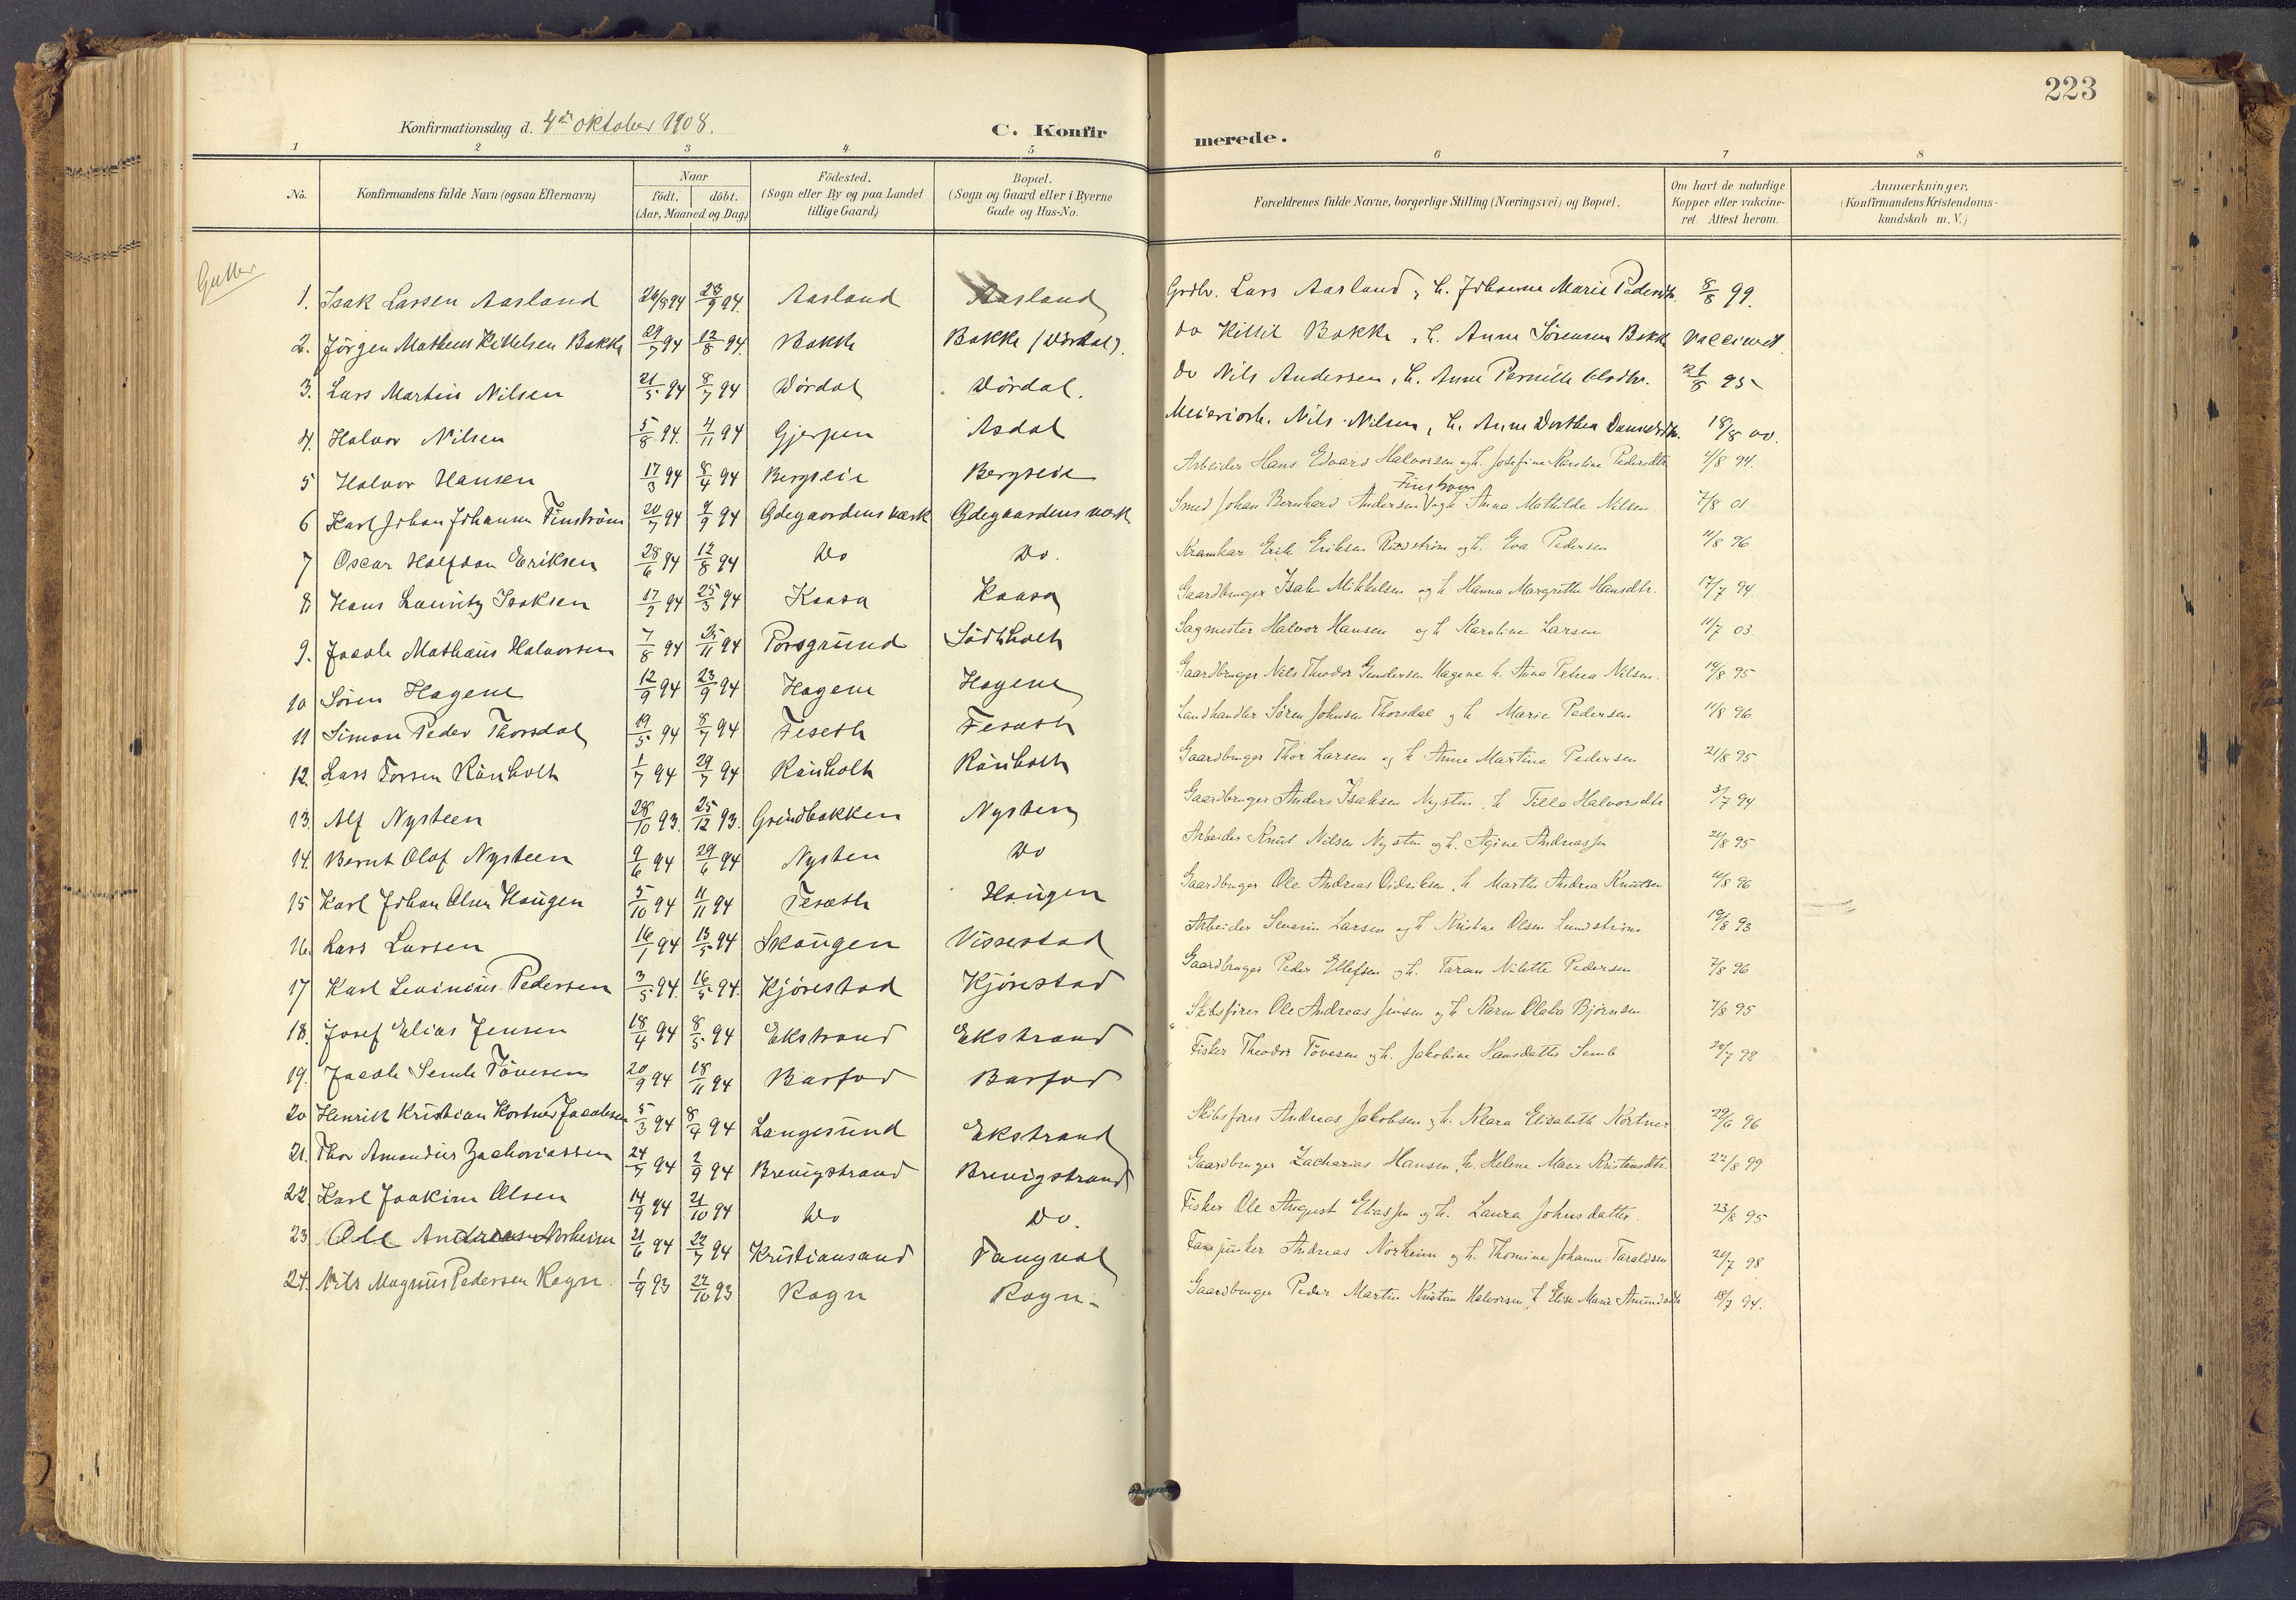 223
Konfirmationsdag d. 4de oktober 1908. C. Konfirmerede.
1 2 3 4 5 6 7 8
No. Konfirmandens fulde Navn (ogsaa Efternavn) Naar født. døbt. (Aar, Maaned og Dag) Födested. (Sogn eller By og paa Landet tillige Gaard) Bopæl. (Sogn og Gaard eller i Byerne Gade og Hus-No. Forældrenes fulde Navne, borgerlige Stilling (Næringsvei) og Bopæl. Om havt de naturlige Kopper eller vakcineret. Attest herom. Anmærkninger. (Konfirmandens Kristendomskundskab m. V.)
Gutter
1. Isak Larsen Aasland 26/8 94 23/9 94. Aasland Aasland Grdbr. Lars Aasland, h. Johanne Marie Pedersdtr. 8/8 99.
2. Jörgen Matheus Kittelsen Bakke 29/7 94 12/8 94. Bakke Bakke (Dørdal). do Kittil Bakke, h. Anne Sörensen Bakk vaccineret
3. Lars Martin Nilsen 21/5 94 8/7 94 Dördal Dördal. do Nils Andersen, h. Anne Pernille Olsdtr. 21/8 95
4. Halvor Nilsen 5/8 94. 4/11 94 Gjerpen Asdal Meieriarb. Nils Nilsen, h. Anne Dorthea Danielsdtr. 18/8 00.
5 Halvor Hansen 17/3 94 8/4 94 Bergseie Bergseie Arbeider Hans Edvard Halvorsen og h. Josefine Karoline Pedersdtr 4/8 94.
6 Karl Johan Johansen Finström 20/7 94 9/9 94 Ødegaardens værk Ødegaardens værk Smed Johan Bernhard Andersen Finstrøm og h. Anna Mathilde Nilsen 7/8 01
7 Oscar Halfdan Eriksen 28/6 94 12/8 94 Do Do. Erik Eriksen og h. Eva Pedersen 11/8 96
8 Hans Lauritz Isaksen 17/2 94 25/3 94 Kaasa Kaasa Gaardbruger Isak Mikkelsen og h Hanna Margrethe Hansdtr. 17/7 94
9. Jacob Mathäus Halvorsen 7/8 94 25/11 94 Porsgrund Södtholt Sagmester Halvor Hansen og h Karoline Larsen 11/7 03
10 Sören Hagene 12/9 94 23/9 94 Hagene Hagene Gaardbruger Nils Theodor Gundersen Hagene h. Anna Petrea Nilsen. 14/8 95
11 Simon Peder Thorsdal 19/5 94 8/7 94 Feseth Feseth Landhandler Sören Johnsen Thorsdal og h Marie Pedersen 11/8 96
12. Lars Torsen Rönholt 1/7 94 29/7 94 Rönholt Rönholt Gaardbruger Thor Larsen og h Anne Martine Pedersen 21/8 95
13. Alf Nysteen 28/10 93. 25/12 93. Grindbakken Nysten Gaardbruger Anders Isaksen Nysten, h Tilla Halvorsdtr 3/7 94
14. Bernt Olaf Nysteen 9/6 94 29/6 94 Nysten Do Arbeider Knut Nilsen Nysten og h. Agine Andreassen 21/8 95
15 Karl Johan Olsen Haugen 5/10 94 11/11 94 Feseth Haugen Gaardbruger Ole Andreas Didriksen, h Marthe Andrea Knutsen 11/8 96
16. Lars Larsen 16/1 94 13/5 94 Skaugen Vissestad Arbeider Severin Larsen og h Kristine Olsen Lundström 19/8 93
17 Karl Levinius Pedersen 3/5 94. 16/5 94. Kjörestad Kjörestad Gaardbruger Peder Ellefsen og h. Taran Nilette Pedersen 7/8 96
18. Josef Elias Jensen 18/4 94 8/5 94 Ekstrand Ekstrand Skibsfører Ole Andreas Jensen og h Karen Olava Bjørnsen 7/8 95
19. Jacob Semb Tönesen 20/9 94 18/11 94 Barfod Barfod Fisker Theodor Tönesen og h. Jakobine Hansdatter Semb 20/7 98
20 Henrik Kristian Kortner Jacobsen 5/3 94 8/4 94 Langesund Ekstrand Skibsfører Andreas Jakobsen og h. Klara Elisabeth Kortner 29/6 96
21. Thor Amandus Zachariassen 24/7 94 2/9 94 Brevigstrand Brevigstrand Gaardbruger Zacharias Hansen, h. Helene Marie Kristensdtr. 22/8 99
22. Karl Joakim Olsen 14/9 94 21/10 94 Do Do. Fisker Ole August Eliassen og h. Laura Johnsdatter. 23/8 95
23 Ole Andreas Norheim 21/6 94 22/7 94 Kristiansand Tangval Fanejunker Andreas Norheim og h. Thomine Johanne Taraldsen 20/7 98
24. Nils Magnus Pedersen Rogn. 1/9 93 22/10 93 Rogn Rogn Gaardbruger Peder Martin Kristian Halvorsen, h Elise Marie Amundsdtr 18/7 94.